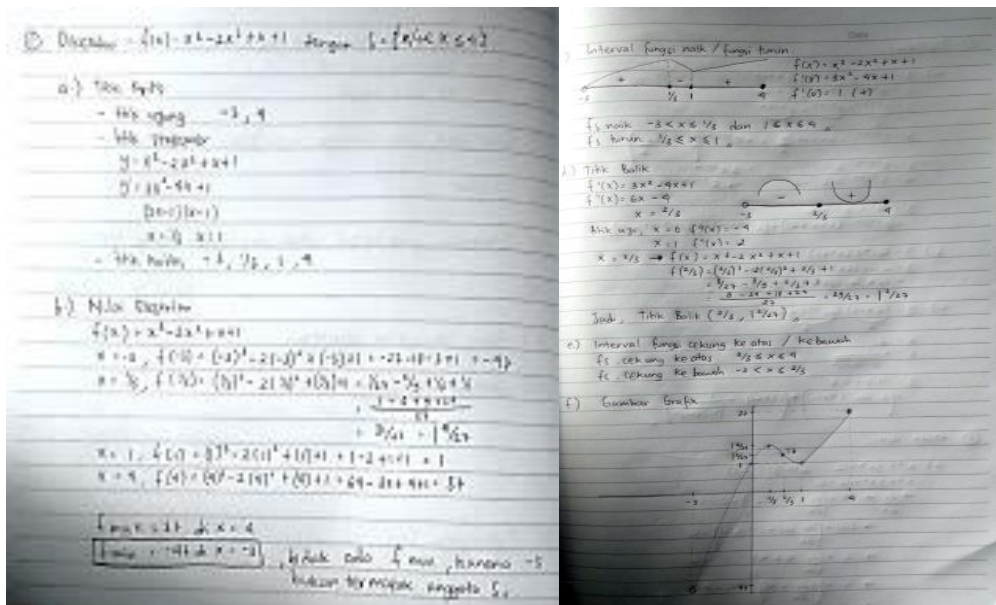 Diketahui = f(x) = x³-2x²+x+1 dengan S = {x/-3< x ≤ 4}
a.) Titik Kritis
- titik ujung -3, 4
- titik stasioner
y = x³-2x²+x+1
y' = 3x²-4x+1
(3x-1)(x-1)
x = 1/3 x = 1
- titik kritis, -3, 1/3, 1, 4
b.) Nilai Ekstrim
f(x) = x³-2x²+x+1
x = -3, f(-3) = (-3)³-2(-3)²+(-3)+1 = -27-18-3+1 = -47
x = 1/3, f(1/3) =
x = 1, f(1) = (1)³-2(1)²+(1)+1 = 1-2+1+1 = 1
x = 4, f(4) = (4)³-2(4)²+(4)+1 = 64-32+4+1 = 37
f max = 37 di x = 4
tidak ada f min, karena -3
bukan termasuk anggota S.
Interval fungsi naik / fungsi turun
f(x) = x³-2x²+x+1
f'(x) = 3x²-4x+1
f'(0) = 1 (+)
+ - +
-3 1/3 1 4
fs naik -3 < x ≤ 1/3 dan 1 ≤ x ≤ 4
fs turun 1/3 ≤ x ≤ 1
Titik Balik
f'(x) = 3x²-4x+1
f''(x) = 6x-4
x = 2/3
- +
-3 2/3 4
titik uji, x = 0 f''(x) = -4
x = 1 f''(x) = 2
x = 2/3 → f(x) = x³-2x²+x+1
f(2/3) = (2/3)³-2(2/3)²+2/3+1
= 8/27 - 8/9 + 2/3 + 1
= 29/27 = 1 2/27
Jadi, Titik Balik (2/3, 1 2/27)
e.) Interval fungsi cekung ke atas / ke bawah
fs cekung ke atas 2/3 ≤ x ≤ 4
fs cekung ke bawah -3 < x ≤ 2/3
f) Gambar Grafik
37
1
-3 1/3 2/3 1 4